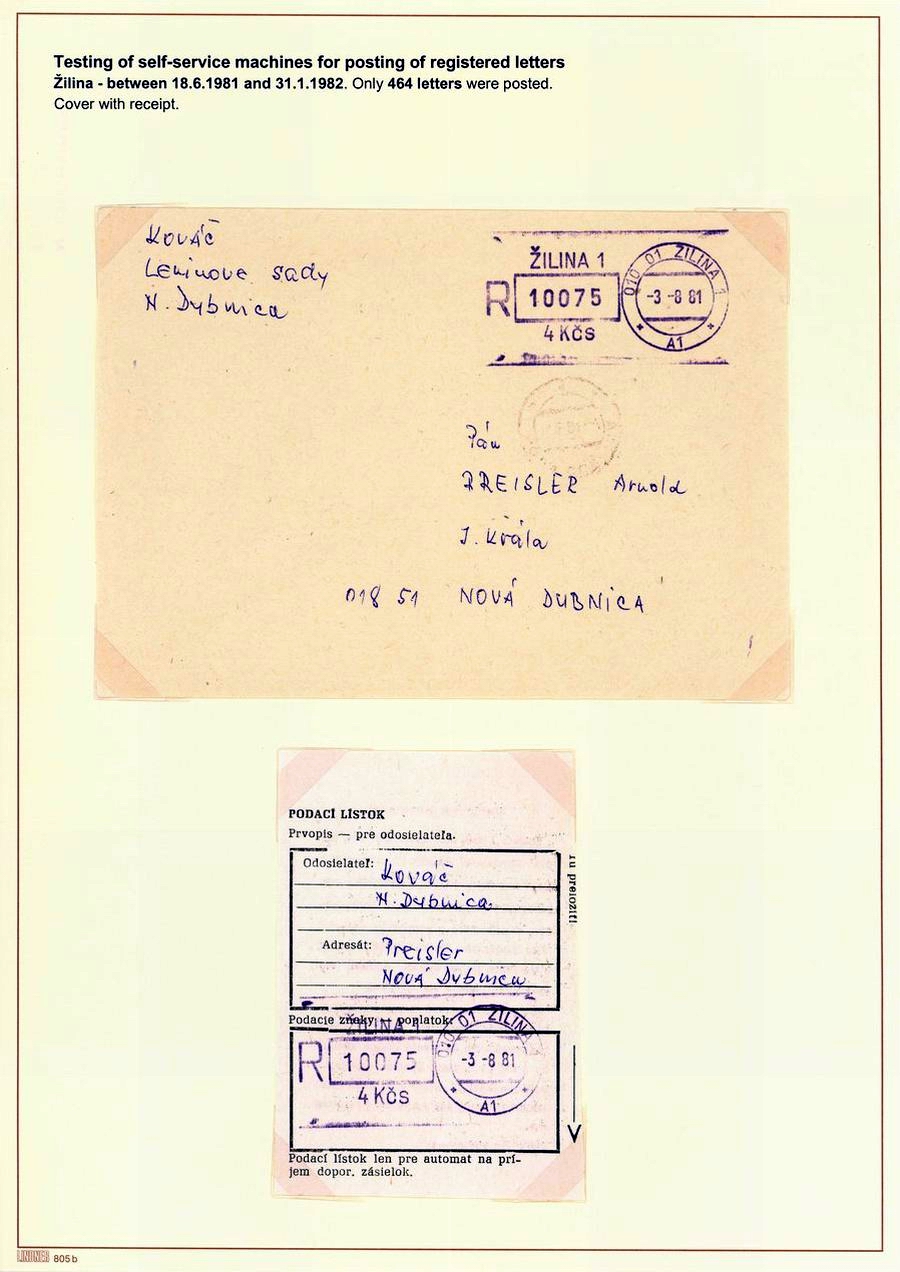 Testing of self-service machines for posting of registered letters
Žilina - between 18.6.1981 and 31.1.1982. Only 464 letters were posted.
Cover with receipt.
Kováč
Leninove sady
N. Dubnica
ŽILINA 1
R 10075
4 Kčs
010 01 ŽILINA 1
-3 -8 81
A1
Pán
PREISLER Arnold
J. Kráľa
018 51 NOVÁ DUBNICA
PODACÍ LÍSTOK
Prvopis — pre odosielateľa.
Odosielateľ: Kováč
N. Dubnica
Adresát: Preisler
NOVÁ Dubnica
Tu preložiť!
Podacie znaky poplatok:
ŽILINA 1
R 10075
4 Kčs
010 01 ŽILINA 1
-3 -8 81
A1
Podací lístok len pre automat na prí-
jem dopor. zásielok.
LINDNER 805 b